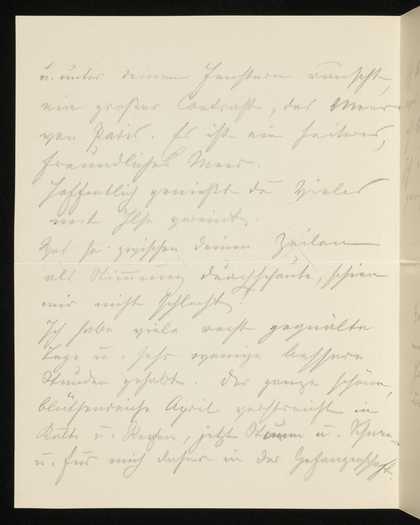 u. unter deinen Fenstern rauscht,
ein großer Contrast, das Meer
von Paris. Es ist ein heiteres,
freundliches Meer.
Hoffentlich genießt du Vieles
mit Ilse vereint.
Was so zwischen deinen Zeilen
als Stimmung durchschaute, schien
mir nicht schlecht.
Ich habe viele recht gequälte
Tage u. sehr wenige bessere
Stunden gehabt. Der ganze schöne,
blüthenreiche April verstreicht in
Kälte u. Regen, jetzt Sturm u. Schnee
u. für mich daher in der Gefangenschaft.